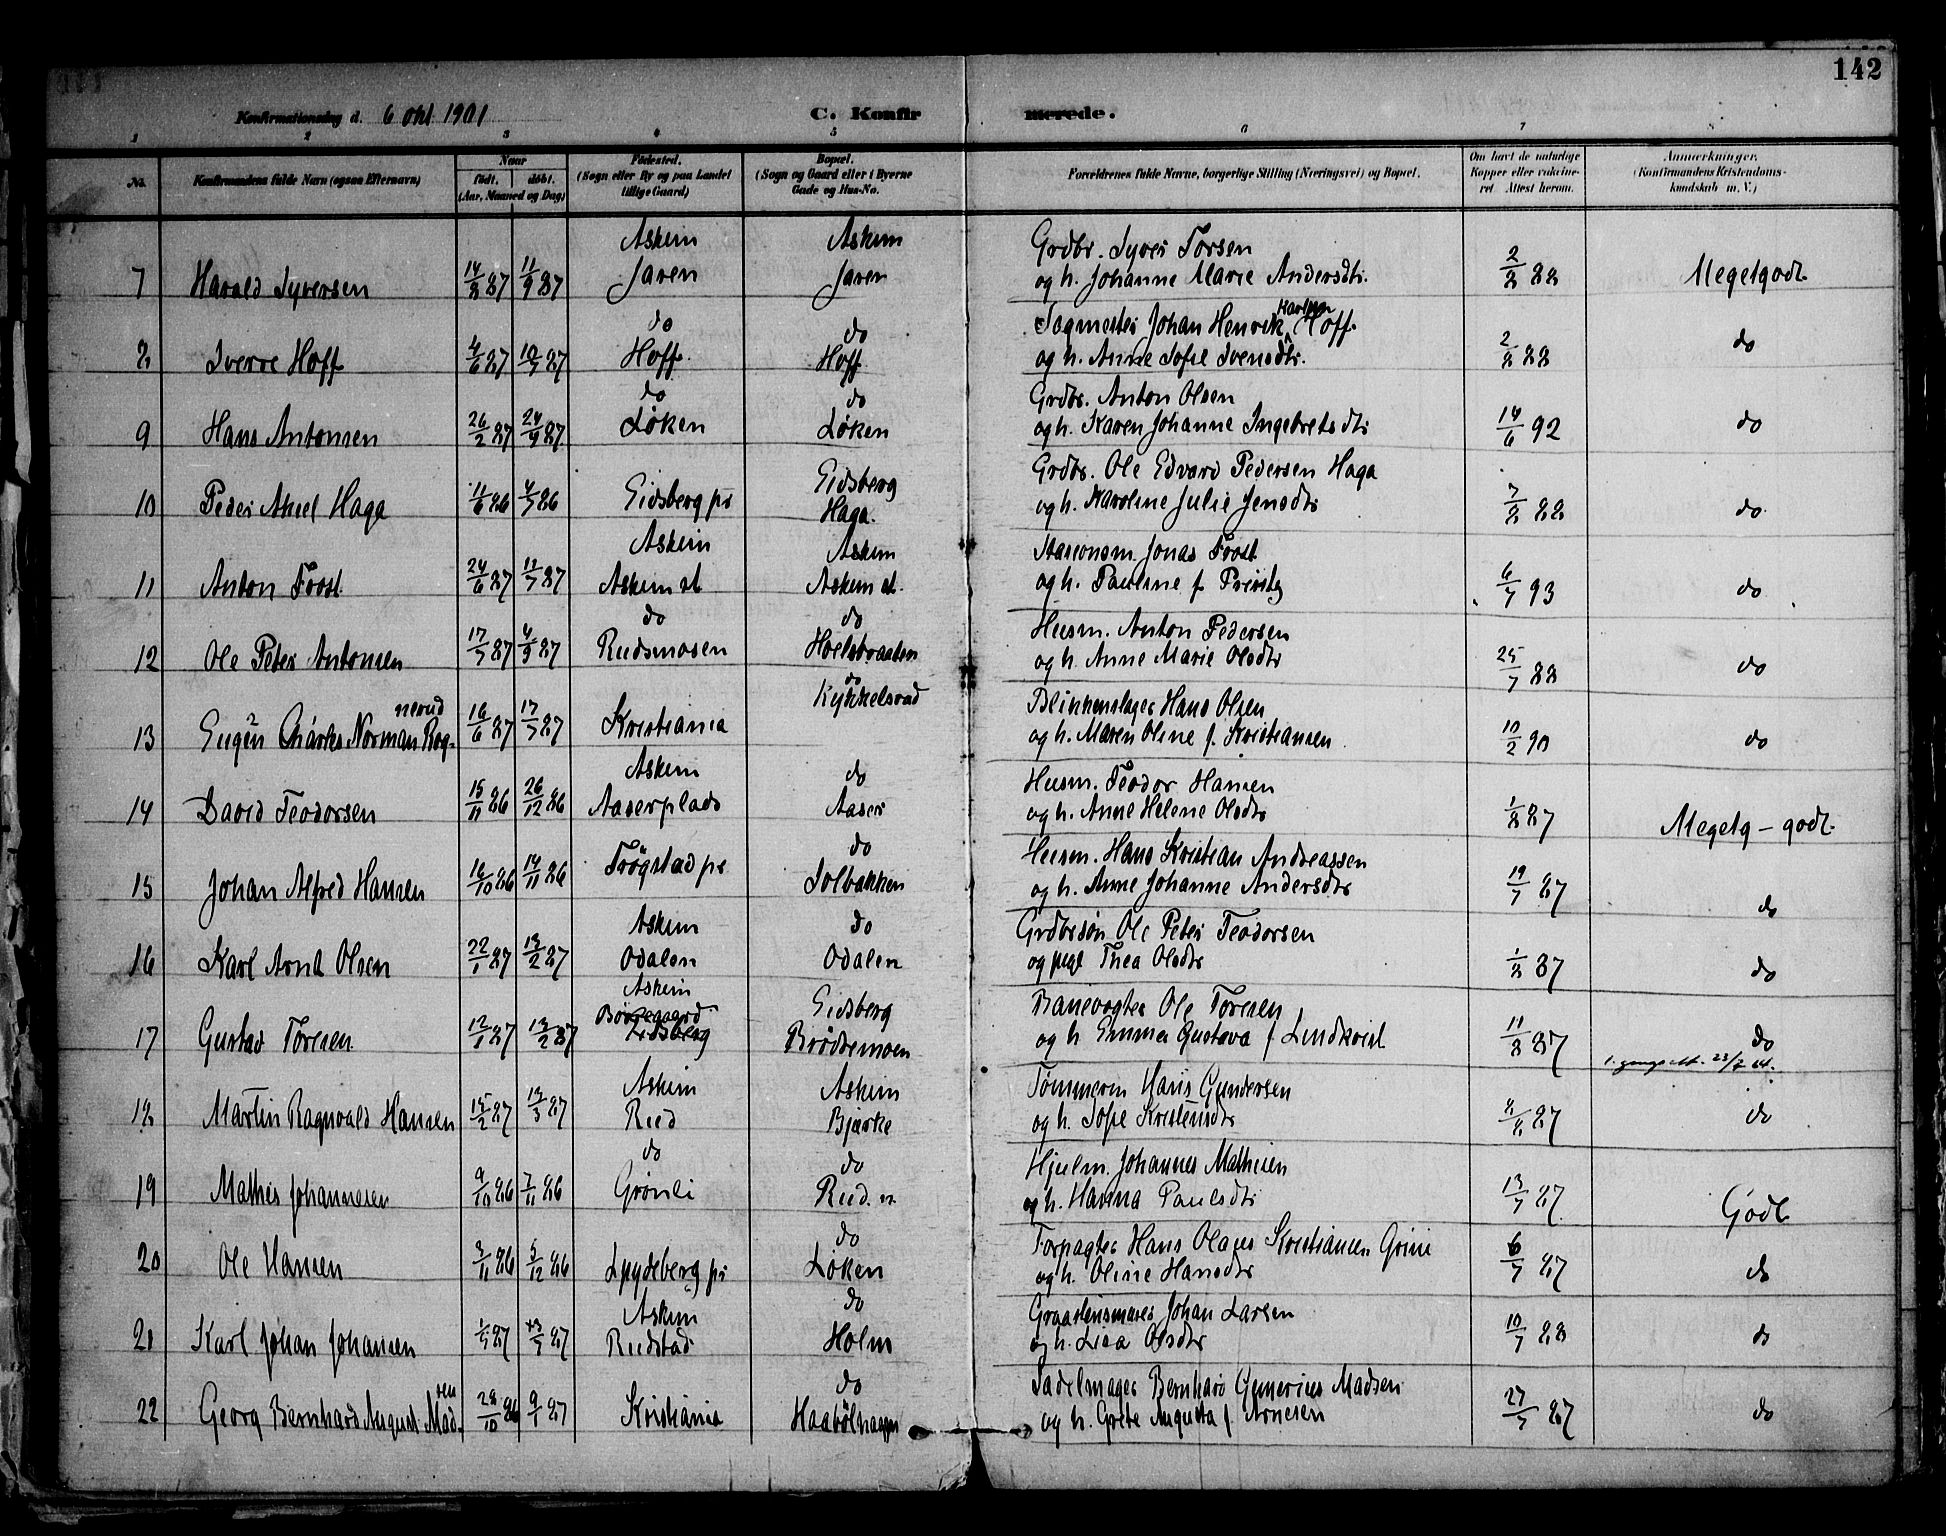 142
Konfirmationsdag d. 6 okt 1901
C. Konfirmerede.
1 2 3 4 5 6 7 8
No.
Konfirmandens fulde Navn (ogsaa Efternavn)
Naar
født. døbt.
(Aar, Maaned og Dag)
Fødested.
(Sogn eller By og paa Landet
tillige Gaard)
Bopæl.
(Sogn og Gaard eller i Byerne
Gade og Hus-No.
Forældrenes fulde Navne, borgerlige Stilling (Næringsvei) og Bopæl.
Om havt de naturlige
Kopper eller vakcine-
ret. Attest herom.
Anmærkninger.
(Konfirmandens Kristendoms-
kundskab m. V.)
Askim Askim Grdbr. Syver Torsen
7 Harald Syversen 14/8 87 11/9 87 Jaren Jaren og h. Johanne Marie Andersdtr. 2/8 88 Megetgodt
do do Sagmester Johan Henrik Karlsen Hoff
8 Sverre Hoff 4/6 87 10/7 87 Hoff Hoff og h. Anne Sofie Svendsdtr. 2/8 88 do
do do Grdbr. Anton Olsen
9 Hans Antonsen 26/2 87 24/4 87 Løken Løken og h. Karen Johanne Ingebretsdtr 14/6 92 do
Eidsberg Grdbr. Ole Edvard Pedersen Haga
10 Peder Aksel Haga 11/6 86 4/7 86 Eidsberg pr Haga. og h. Karoline Julie Jensdtr 7/8 88 do
Askim Askim Stasionsm. Jonas Foost
11 Anton Foost 24/6 87 17/7 87 Askim st Askim st. og h. Pauline f. 6/7 93 do
do do Husm. Anton Pedersen
12 Ole Peter Antonsen 17/7 87 4/9 87 Rudsmosen Hoelsbraaten og h. Anne Marie Olsdtr 25/7 88 do
nerud do Kykkelsrud Blikkenslager Hans Olsen
13 Eugèn Charles Norman Rog- 16/6 87 17/7 87 Kristiania og h. Maren Oline f. Kristiansen 10/2 90 do
Askim do Husm. Teodor Hansen
14 David Teodorsen 15/11 86 26/12 86 Aaserplads Aaser og h. Anne Helene Olsdtr 1/8 87 Megetg – godt.
do Husm. Hans Kristian Andreassen
15 Johan Alfred Hansen 16/10 86 14/11 86 Trøgstad pr Solbakken og h. Anne Johanne Andersdtr 19/7 87 do
Askim do Grdbrsøn Ole Peter Teodorsen
16 Karl Arnt Olsen 22/1 87 13/2 87 Odalen Odalen og pige Thea Olsdtr 1/8 87 do
Askim Eidsberg Banevogter Ole Toresen
Børgegaard
17 Gustav Toresen 12/1 87 13/2 87 Eidsberg Brødremoen og h Emma Gustava f Lindkvist 11/8 87 do
Askim Askim Tømmerm Hans Gundersen
18 Martin Ragnvald Hansen 15/2 87 13/3 87 Rud Bjørke og h. Sofie Kristensdtr 2/8 87 do
do do Hjulm. Johannes Mathisen
19 Mathis Johannesen 9/10 86 7/11 86 Grønli Rud. og h. Hanna Paulsdtr 13/7 87 Godt
do Forpagter Hans Olaves Kristiansen Grini
20 Ole Hansen 3/11 86 5/12 86 Spydeberg pr Løken og h. Oline Hansdtr 6/7 87 do
Askim do Graastensmurer Johan Larsen
21 Karl Johan Johansen 87 87 Rudstad Holm og h. Lisa Olsdtr 10/7 88 do
sen do Sadelmager Bernhard Gunerius Madsen
22 Georg Bernhard August Mad- 28/10 86 9/1 87 Kristiania Haabølhagen og h. Grete Augusta f. Arnesen 27/7 87 do